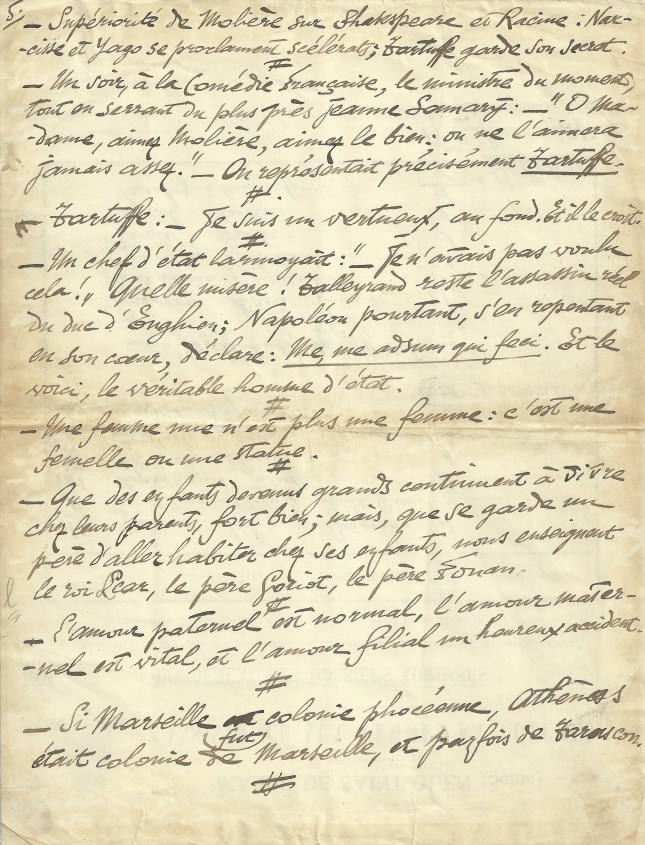 5/ — Supériorité de Molière sur Shakespeare et Racine : Nar-
-cisse et Yago se proclament scélérats; Tartuffe garde son secret.
#
— Un soir, à la Comédie Française, le ministre du moment,
tout en serrant du plus près Jeanne Samary : — "O Ma-
-dame, aimez Molière, aimez le bien : on ne l'aimera
jamais assez." — On représentait précisément Tartuffe.
#.
— Tartuffe : — Je suis un vertueux, au fond. Et il le croit.
#
— Un chef d'état larmoyait : "— Je n'avais pas voulu
cela !" Quelle misère ! Talleyrand reste l'assassin réel
du duc d'Enghien; Napoléon pourtant, s'en repentant
en son cœur, déclare : Me, me adsum qui feci. Et le
voici, le véritable homme d'état.
#
— Une femme nue n'est plus une femme : c'est une
femelle ou une statue.
#
— Que des enfants devenus grands continuent à vivre
chez leurs parents, fort bien; mais, que se garde un
père d'aller habiter chez ses enfants, nous enseignent
le roi Lear, le père Goriot, le père Fouan.
#
— L'amour paternel est normal, l'amour mater-
-nel est vital, et l'amour filial un heureux accident.
#
— Si Marseille fut colonie phocéenne, Athènes
était colonie de Marseille, et parfois de Tarascon.
#